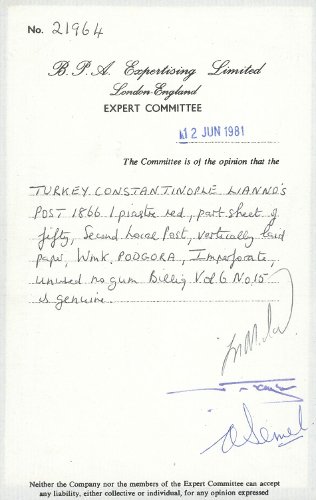 No. 21964
B. P. A. Expertising Limited
London-England
EXPERT COMMITTEE
12 JUN 1981
The Committee is of the opinion that the
TURKEY CONSTANTINOPLE LIANNO'S
POST 1866 1 piastre red, part sheet of
fifty, Second Local Post, vertically laid
paper, Wmk, PODGORA, Imperforate,
unused no gum Billig Vol 6 No. 15
is genuine.
Neither the Company nor the members of the Expert Committee can accept
any liability, either collective or individual, for any opinion expressed